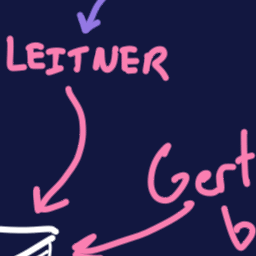 LEITNER
Gert
b